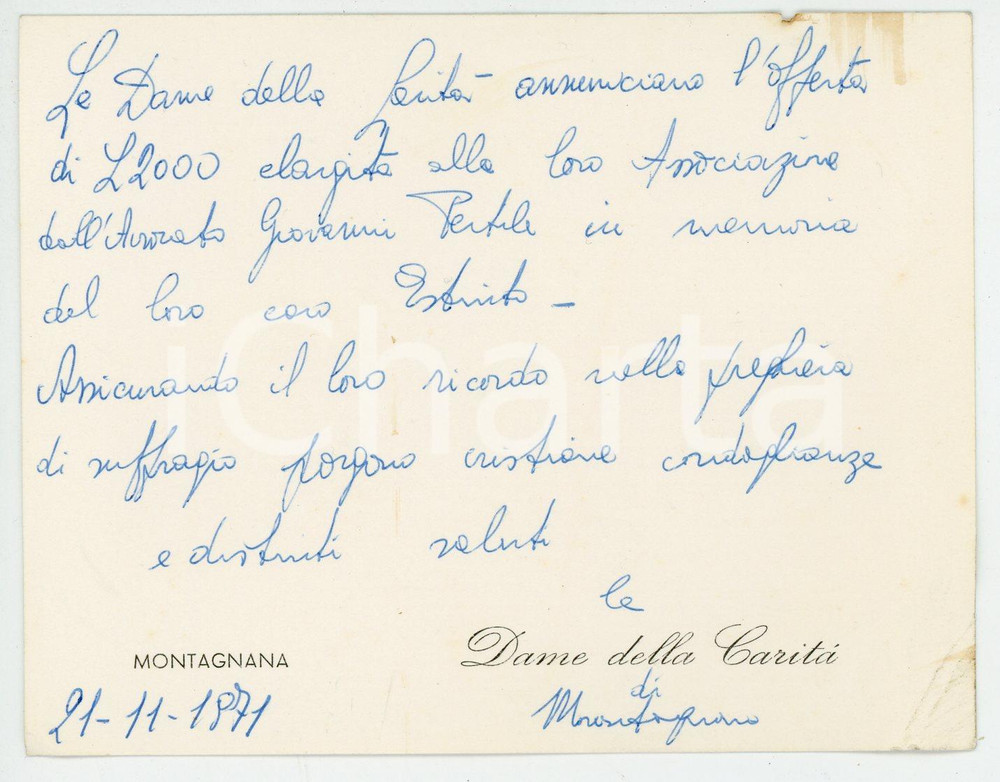 Le Dame della Carità annunciano l'offerta
di £2000 elargita alla loro Associazione
dall'Avvocato Giovanni Pertile in memoria
del loro caro Estinto -
Assicurando il loro ricordo nella preghiera
di suffragio porgono cristiane condoglianze
e distinti saluti
le
MONTAGNANA
Dame della Caritá
di
21-11-1971
Montagnana
iCharta